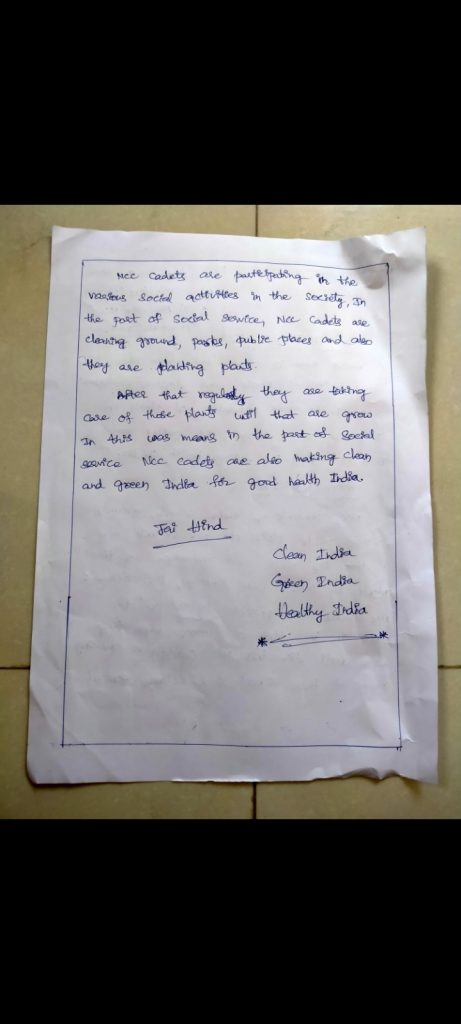 NCC Cadets are participating in the
various social activities in the society, In
the part of social service, NCC Cadets are
cleaning ground, parks, public places and also
they are planting plants.
After that regularly they are taking
care of those plants until that are grow
In this was means in the part of social
service NCC cadets are also making clean
and green India for good health India.
Jai Hind
Clean India
Green India
Healthy India